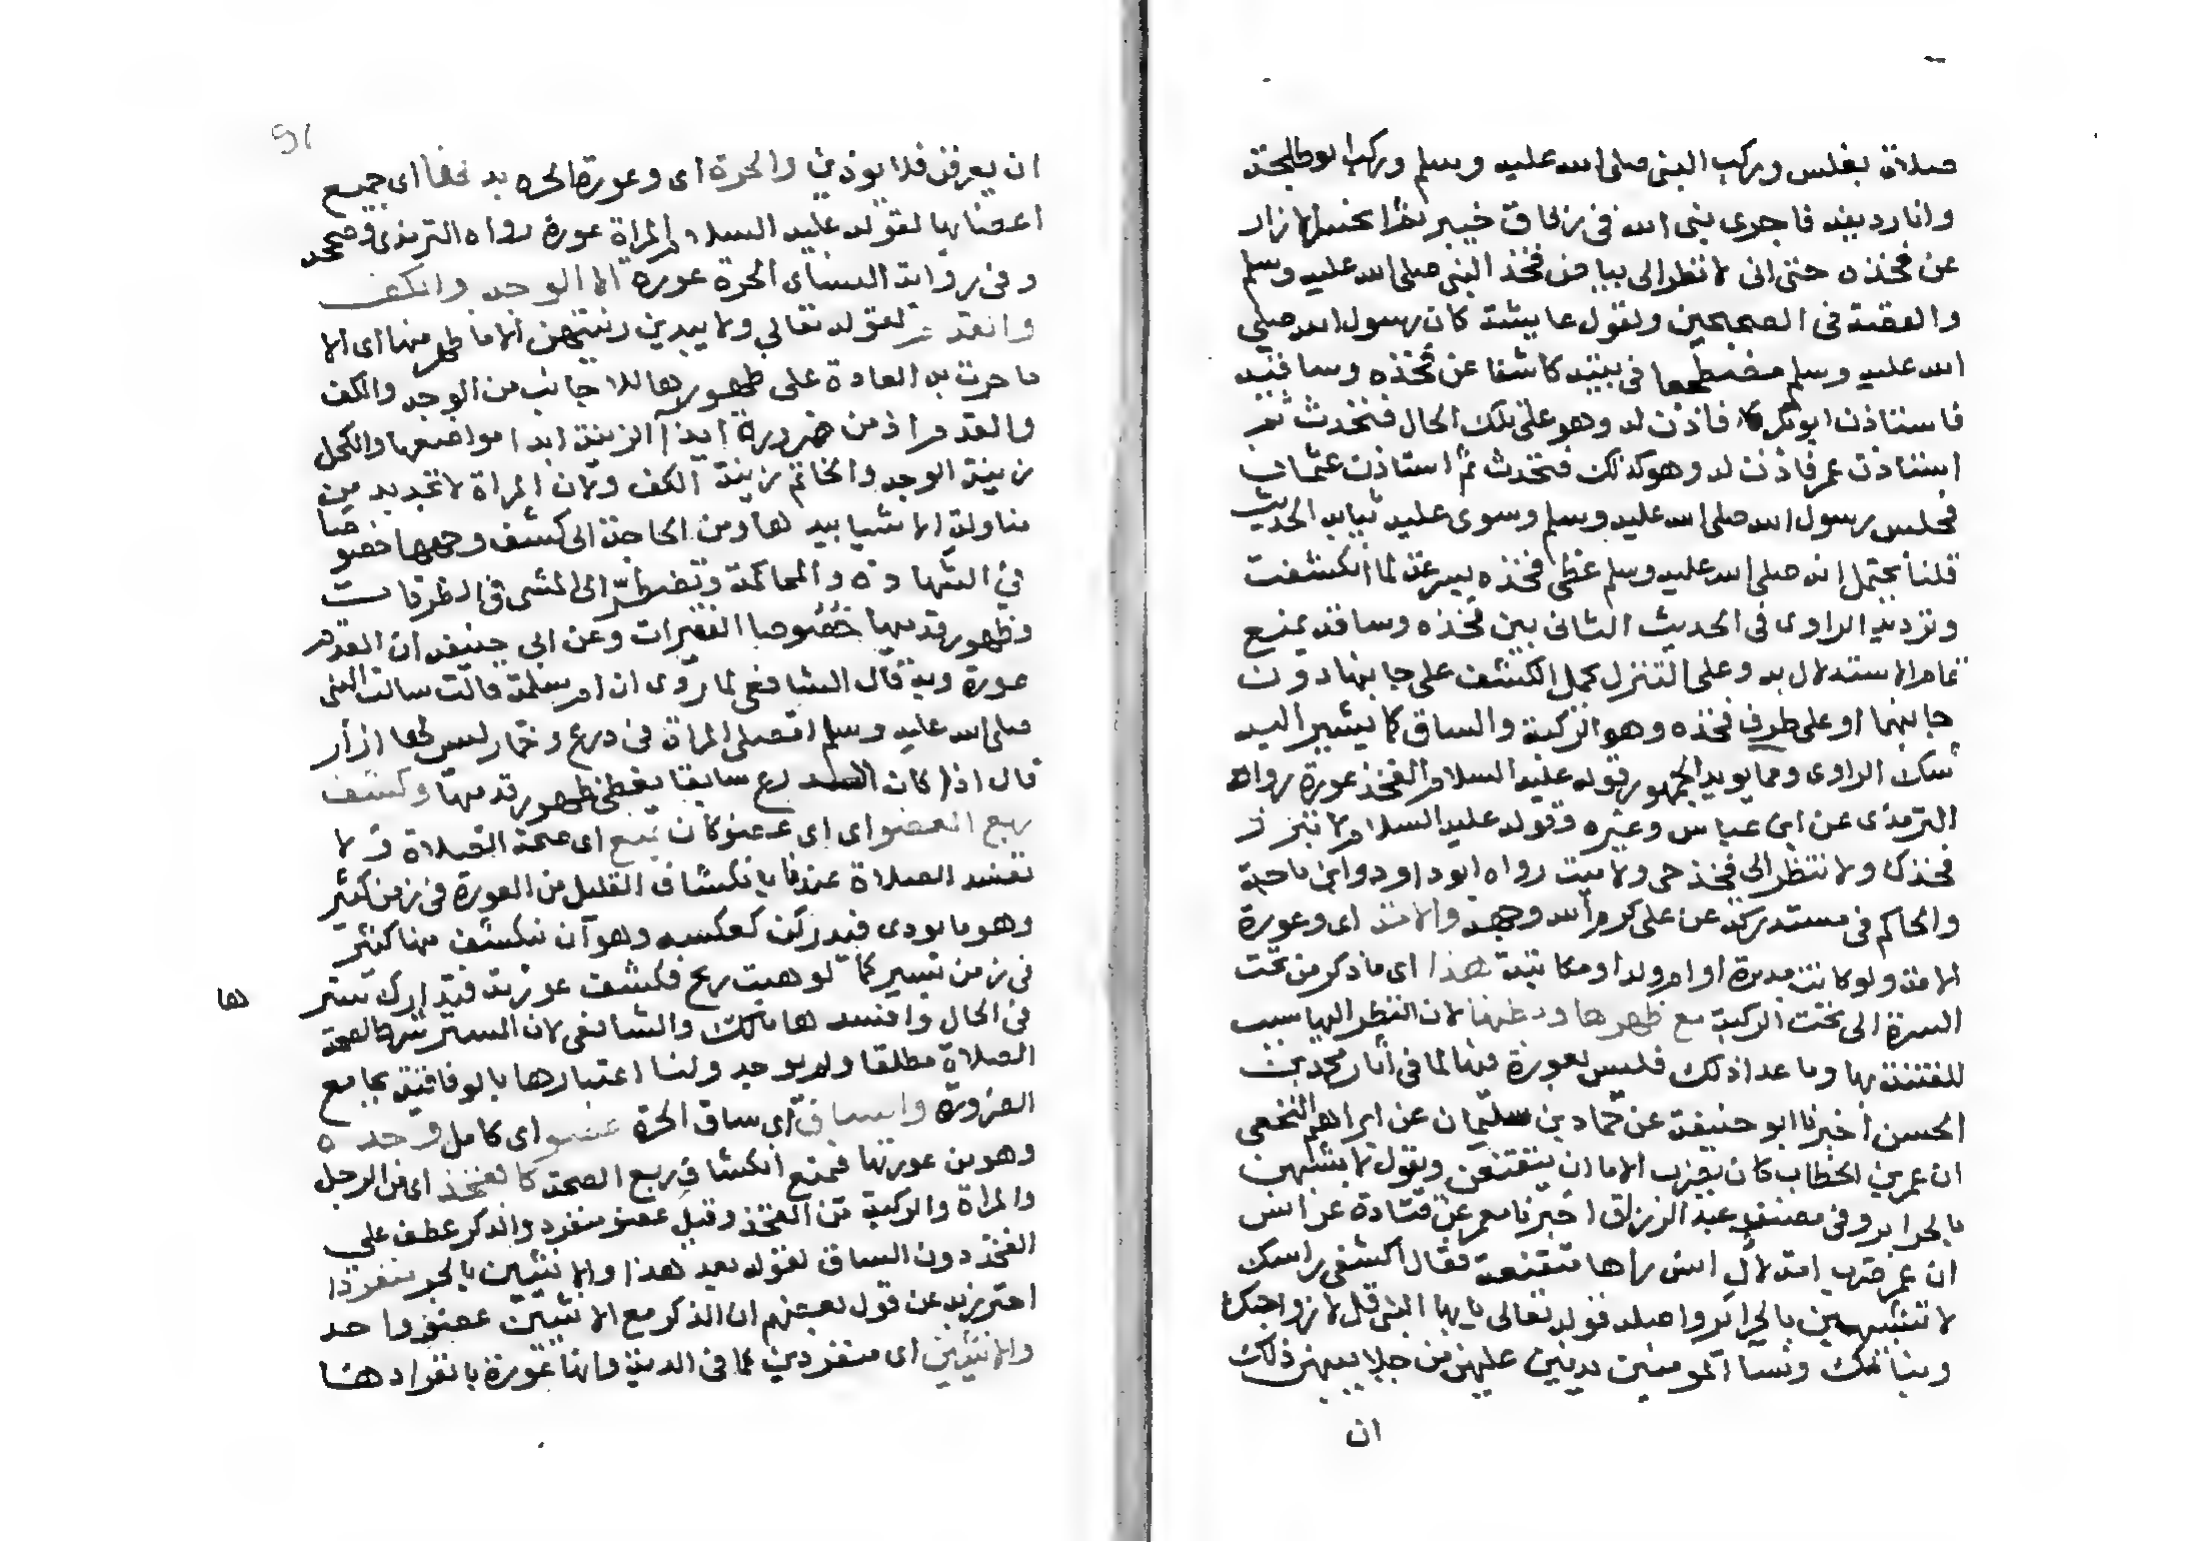 صلاة بغلس وركب النبى صلى الله عليه وسلم وركب ابوطلحة
وانا رديفه فاجرى نبى الله فى زقاق خيبر ثم انحسر الازار
عن فخذه حتى انى لانظر الى بياض فخذ النبى صلى الله عليه وسلم
والقصة فى الصحيحين ولقول عايشة كان رسول الله صلى
الله عليه وسلم مضطجعا فى بيته كاشفا عن فخذه وساقيه
فاستاذن ابوبكر فاذن له وهو على تلك الحال فتحدث ثم
استاذن عمر فاذن له وهو كذلك فتحدث ثم استاذن عثمان
فجلس رسول الله صلى الله عليه وسلم وسوى عليه ثيابه الحديث
قلنا يحتمل انه صلى الله عليه وسلم غطى فخذه بسرعة لما انكشفت
وترديد الراوى فى الحديث الثانى بين فخذه وساقه يمنع
تمام الاستدلال به وعلى التنزل يحمل الكشف على جانبها دون
جانبهما او على طرف فخذه وهو الركبة والساق كما يشير اليه
شك الراوى ومما يويد الجمهور قوله عليه السلام الفخذ عورة رواه
الترمذى عن ابن عباس وغيره وقوله عليه السلام ولا تبرز
فخذك ولا تنظر الى فخذ حى ولا ميت رواه ابوداود وابن ماجة
والحاكم فى مستدركه عن على كرم الله وجهه والامة اى وعورة
الامة ولو كانت مدبرة او ام ولد او مكاتبة هذا اى ما ذكر من تحت
السرة الى تحت الركبة مع ظهرها وبطنها لان النظر اليها سبب
للفتنة بها وما عدا ذلك فليس بعورة منها لما فى اثار محمد بن
الحسن اخبرنا ابو حنيفة عن حماد بن سليمان عن ابراهم النخعى
ان عمر بن الخطاب كان يضرب الاما ان يتقنعن ويقول لا يتشبهن
بالحراير وفى مصنف عبد الرزاق اخبرنا معمر عن قتادة عن انس
ان عمر ضرب امة لال انس راها متقنعة فقال اكشفى راسك
لا تتشبهين بالحراير واصله قوله تعالى يايها النبى قل لازواجك
وبناتك ونسا المومنين يدنين عليهن من جلابيبهن ذلك
ان
ان يعرفن فلا يوذين والحرة اى وعورة الحره بدنها اى جميع
اعضايها لقوله عليه السلام المراة عورة رواه الترمذى وصححه
وفى رواية النساى الحرة عورة الا الوجه والكف
والقدم لقوله تعالى ولا يبدين زينتهن الا ما ظهر منها اى الا
ما جرت به العادة على ظهورها للاجانب من الوجه والكف
والقدم اذ من ضرورة ابدا الزينة ابدا مواضعها والكحل
زينة الوجه والخاتم زينة الكف ولان المراة لا تجد بد من
مناولة الاشيا بيدها ومن الحاجة الى كشف وجهها خصوصا
فى الشهادة والمحاكمة وتضطر الى المشى فى الطرقات
وظهور قدميها خصوصا الفقيرات وعن ابى حنيفه ان القدم
عورة وبه قال الشافعى لما روى ان ام سلمة قالت سالت النبى
صلى الله عليه وسلم اتصلى المراة فى درع وخمار ليس لها ازار
قال اذا كان الدرع سابغا يغطى ظهور قدميها وكشف
ربع العضو اى اى عضو كان يمنع اى صحة الصلاة ولا
تفسد الصلاة عندنا بانكشاف القليل من العورة فى زمن كثير
وهو ما يودى فيه ركن كعكسه وهو ان ينكشف منها كثير
فى زمن يسير كما لو هبت ريح فكشف عورته فتدارك ستر
ها
فى الحال وافسدها مالك والشافعى لان الستر شرط لصحة
الصلاة مطلقا ولم يوجد ولنا اعتبارها بالوفاقية بجامع
الضرورة والساق اى ساق الحرة عضو اى كامل وحده
وهو من عورتها فيمنع انكشاف ربع الصحة كالفخذ اى من الرجل
والمراة والركبة من الفخذ وقيل عضو منفرد والذكر عطف على
الفخذ دون الساق لقوله بعد هذا والانثيين بالجر منفردا
احترز به عن قول بعضهم ان الذكر مع الانثيين عضو واحد
والانثيين اى منفردين لما فى الدية وانها عورة بانفرادها